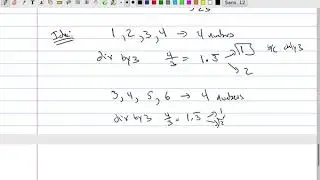 Idea: 1, 2, 3, 4 → 4 numbers
div by 3 4/3 = 1.3 → 1 b/c only 3
→ 2
3, 4, 5, 6 → 4 numbers
div by 3 4/3 = 1.3 → 1
→ 2